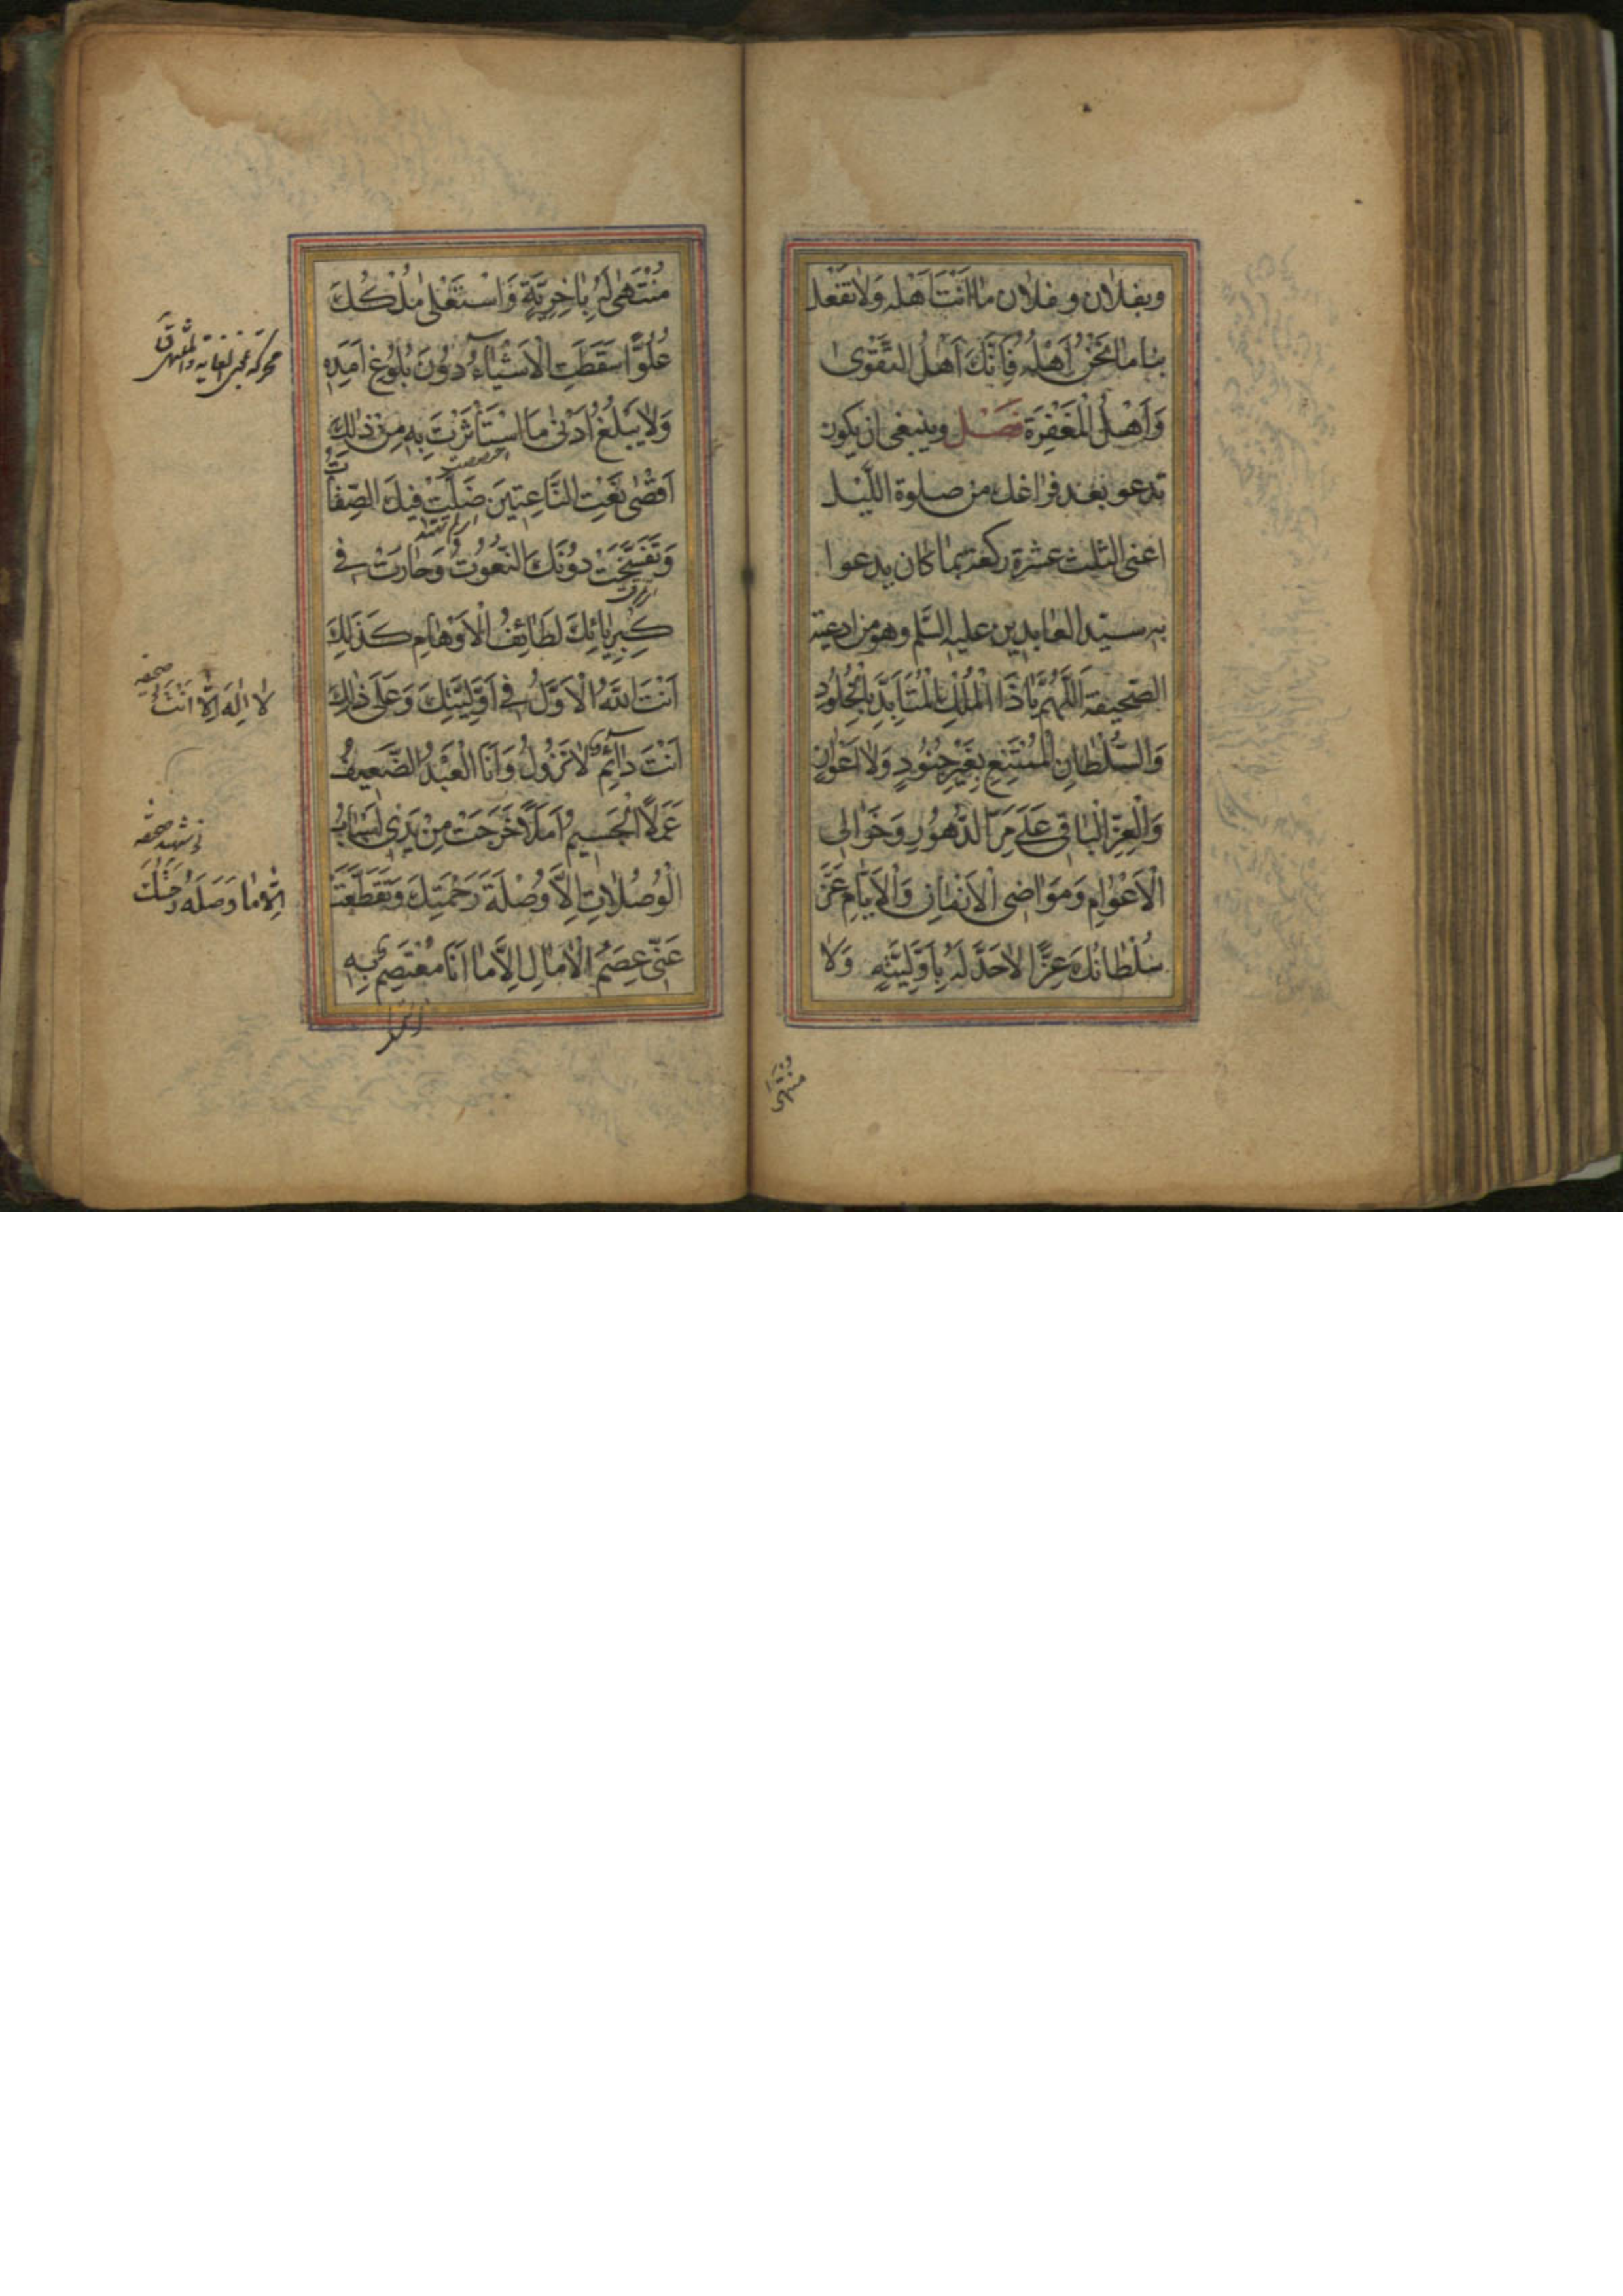 وبفلان و فلان ما انت اهله ولا تفعل
بنا ما نَحْنُ اَهْلُه فَاِنَّكَ اَهْلُ التَّقْوىٰ
وَاَهْلُ الْمَغْفِرَةِ فصل وينبغى ان يكون
تدعو بعد فراغك من صلوة اللّيل
اعنى الثلث عشرة ركعة بما كان يدعوا
به سيّد العابدين عليه السّلم وهو من ادعية
الصّحيفة اَللّٰهُمَّ يَا ذَا الْمُلْكِ الْمُتَاَبِّدِ بِالْخُلُودِ
وَالسُّلْطَانِ الْمُمْتَنِعِ بِغَيْرِ جُنُودٍ وَلَا اَعْوَانٍ
وَالْعِزِّ الْبَاقِى عَلَى مَرِّ الدُّهُورِ وَخَوَالِى
الْاَعْوَامِ وَمَوَاضِى الْاَزْمَانِ وَالْاَيَّامِ عَزَّ
سُلْطَانُكَ عِزًّا لَا حَدَّ لَهُ بِاَوَّلِيَّةٍ وَلَا
منتهى
مُنْتَهىٰ لَهُ بِاٰخِرِيَّةٍ وَاسْتَعْلىٰ مُلْكُكَ
عُلُوًّا سَقَطَتِ الْاَشْيَاءُ دُونَ بُلُوغِ اَمَدِهِ
وَلَا يَبْلُغُ اَدْنىٰ مَا اسْتَأْثَرْتَ بِهِ مِنْ ذٰلِكَ
اَقْصٰى نَعْتِ النَّاعِتِينَ ضَلَّتْ فِيكَ الصِّفَاتُ
وَتَفَسَّخَتْ دُونَكَ النُّعُوتُ وَحَارَتْ فِى
كِبْرِيَائِكَ لَطَائِفُ الْاَوْهَامِ كَذٰلِكَ
اَنْتَ اللّٰهُ الْاَوَّلُ فِى اَوَّلِيَّتِكَ وَعَلَى ذٰلِكَ
اَنْتَ دَائِمٌ لَا تَزُولُ وَاَنَا الْعَبْدُ الضَّعِيفُ
عَمَلًا الْجَسِيمُ اَمَلًا خَرَجَتْ مِنْ يَدِى اَسْبَابُ
الْوُصُلَاتِ اِلَّا وُصْلَةَ رَحْمَتِكَ وَتَقَطَّعَتْ
عَنِّى عِصَمُ الْاٰمَالِ اِلَّا مَا اَنَا مُعْتَصِمٌ بِهِ
لَا اِلٰهَ اِلَّا اَنْتَ
اِلَّا مَا وَصَلَهُ رَحْمَتُكَ